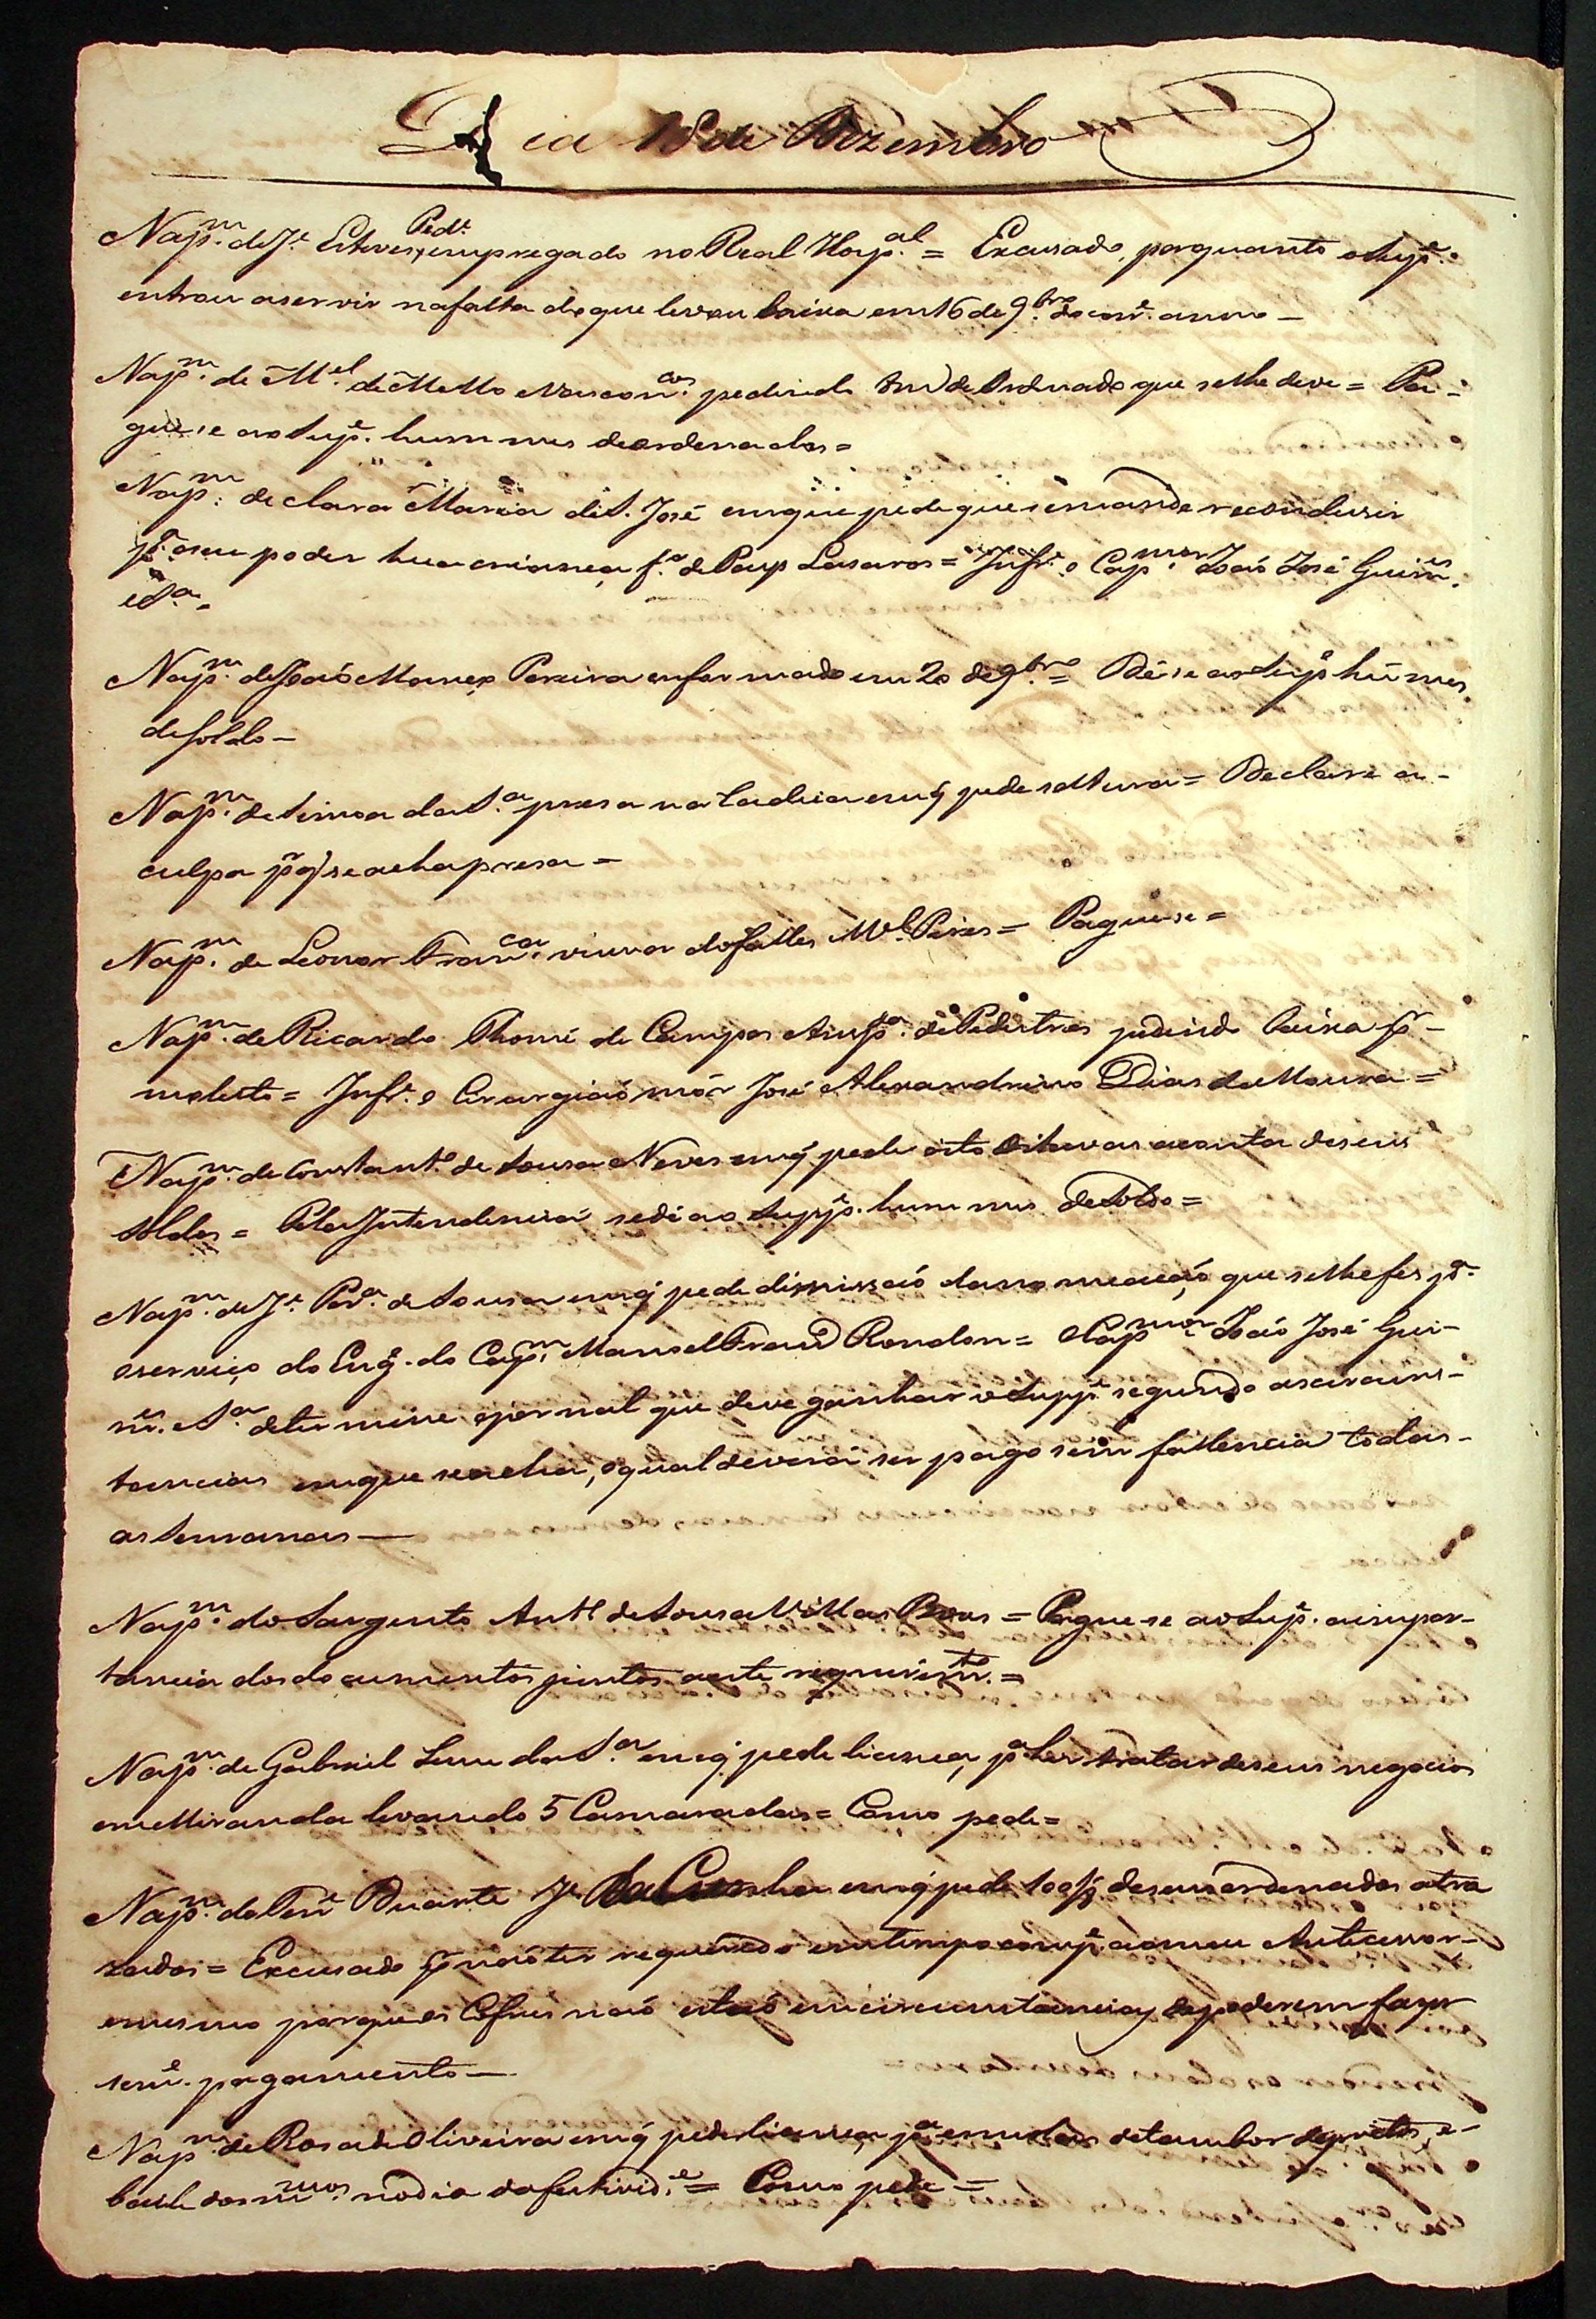 Dia 18 de Dezembro
Na p.m de J.e Esteves, Ped.e empregado no Real Hosp.al = Excusado, porquanto o Sup.e
entrou a servir na falta do que levou baixa em 16 de 9.bro do corr.e anno _
Na p.m de M.el de Mello e Vascon.cos pedindo do Ordenado que se lhe deve = Pa-
gue-se ao Sup.e hum mes de ordenados =
Na p.m de Clara Maria de S. José em que pede que se mande reconduzir
p.a o seu poder hua criança f.a de Pays Lasaros = Inf.e o Cap.mor João José Guim.es
e S.a =
Na p.m de João Manoel Pereira enfermado em 20 de 9.bro = Dê-se ao Sup.e hũ mes
de soldo _
Na p.m de Simoa da S.a presa na Cadeia em q̃ pede soltura = Declare a
culpa p.r q̃ se acha presa =
Na p.m de Leonor Fran.ca viuva do falles M.el Peres = Pague-se =
Na p.m de Ricardo Thomé de Campos Ansp.da de Pedestres pedindo baixa p.r
molesto = Inf.e o Cirurgião mór José Alexandrino Dias de Moura =
Na p.m de Constant.o de Sousa Neves em q̃ pede oito oitavas a conta de seus
soldos = Pela Intendencia se dê ao Supp.e hum mes de Soldo =
Na p.m de J.e Per.a de Sousa em q̃ pede dispissão da nomeação, que se lhe fes p.a
o serviço do Eng.o do Cap.m Manoel Fran.co Rondon = O Cap.mor João José Gui-
m.es e S.a determine o jornal que deve ganhar o Supp.e segundo as circuns-
tancias em que se acha, o qual deverá ser pago sem fallencia todas
as semanas _
Na p.m do Sargento Ant.o de Sousa Villas Boas = Pague-se ao Sup.e a impor-
tancia dos documentos juntos a este requerim.to =
Na p.m de Gabriel Leme da S.a em q̃ pede licença p.a hir tratar de seus negocios
em Miranda levando 5 Camaradas = Como pede =
Na p.m do Ten.e Duarte J.e da Cunha em q̃ pede de seus ordenados atra
zados = Excusado p.r não ter requerido em tempo comp.e ao meu Antecessor
e mesmo porque os Cofres não estão em circunstancias de poderem fazer
sem.e pagamento _
Na p.m de Rosa de Oliveira em q̃ pede licença p.a de tambor de pretos, e
baile dos m.mos no dia da festivid.e = Como pede =